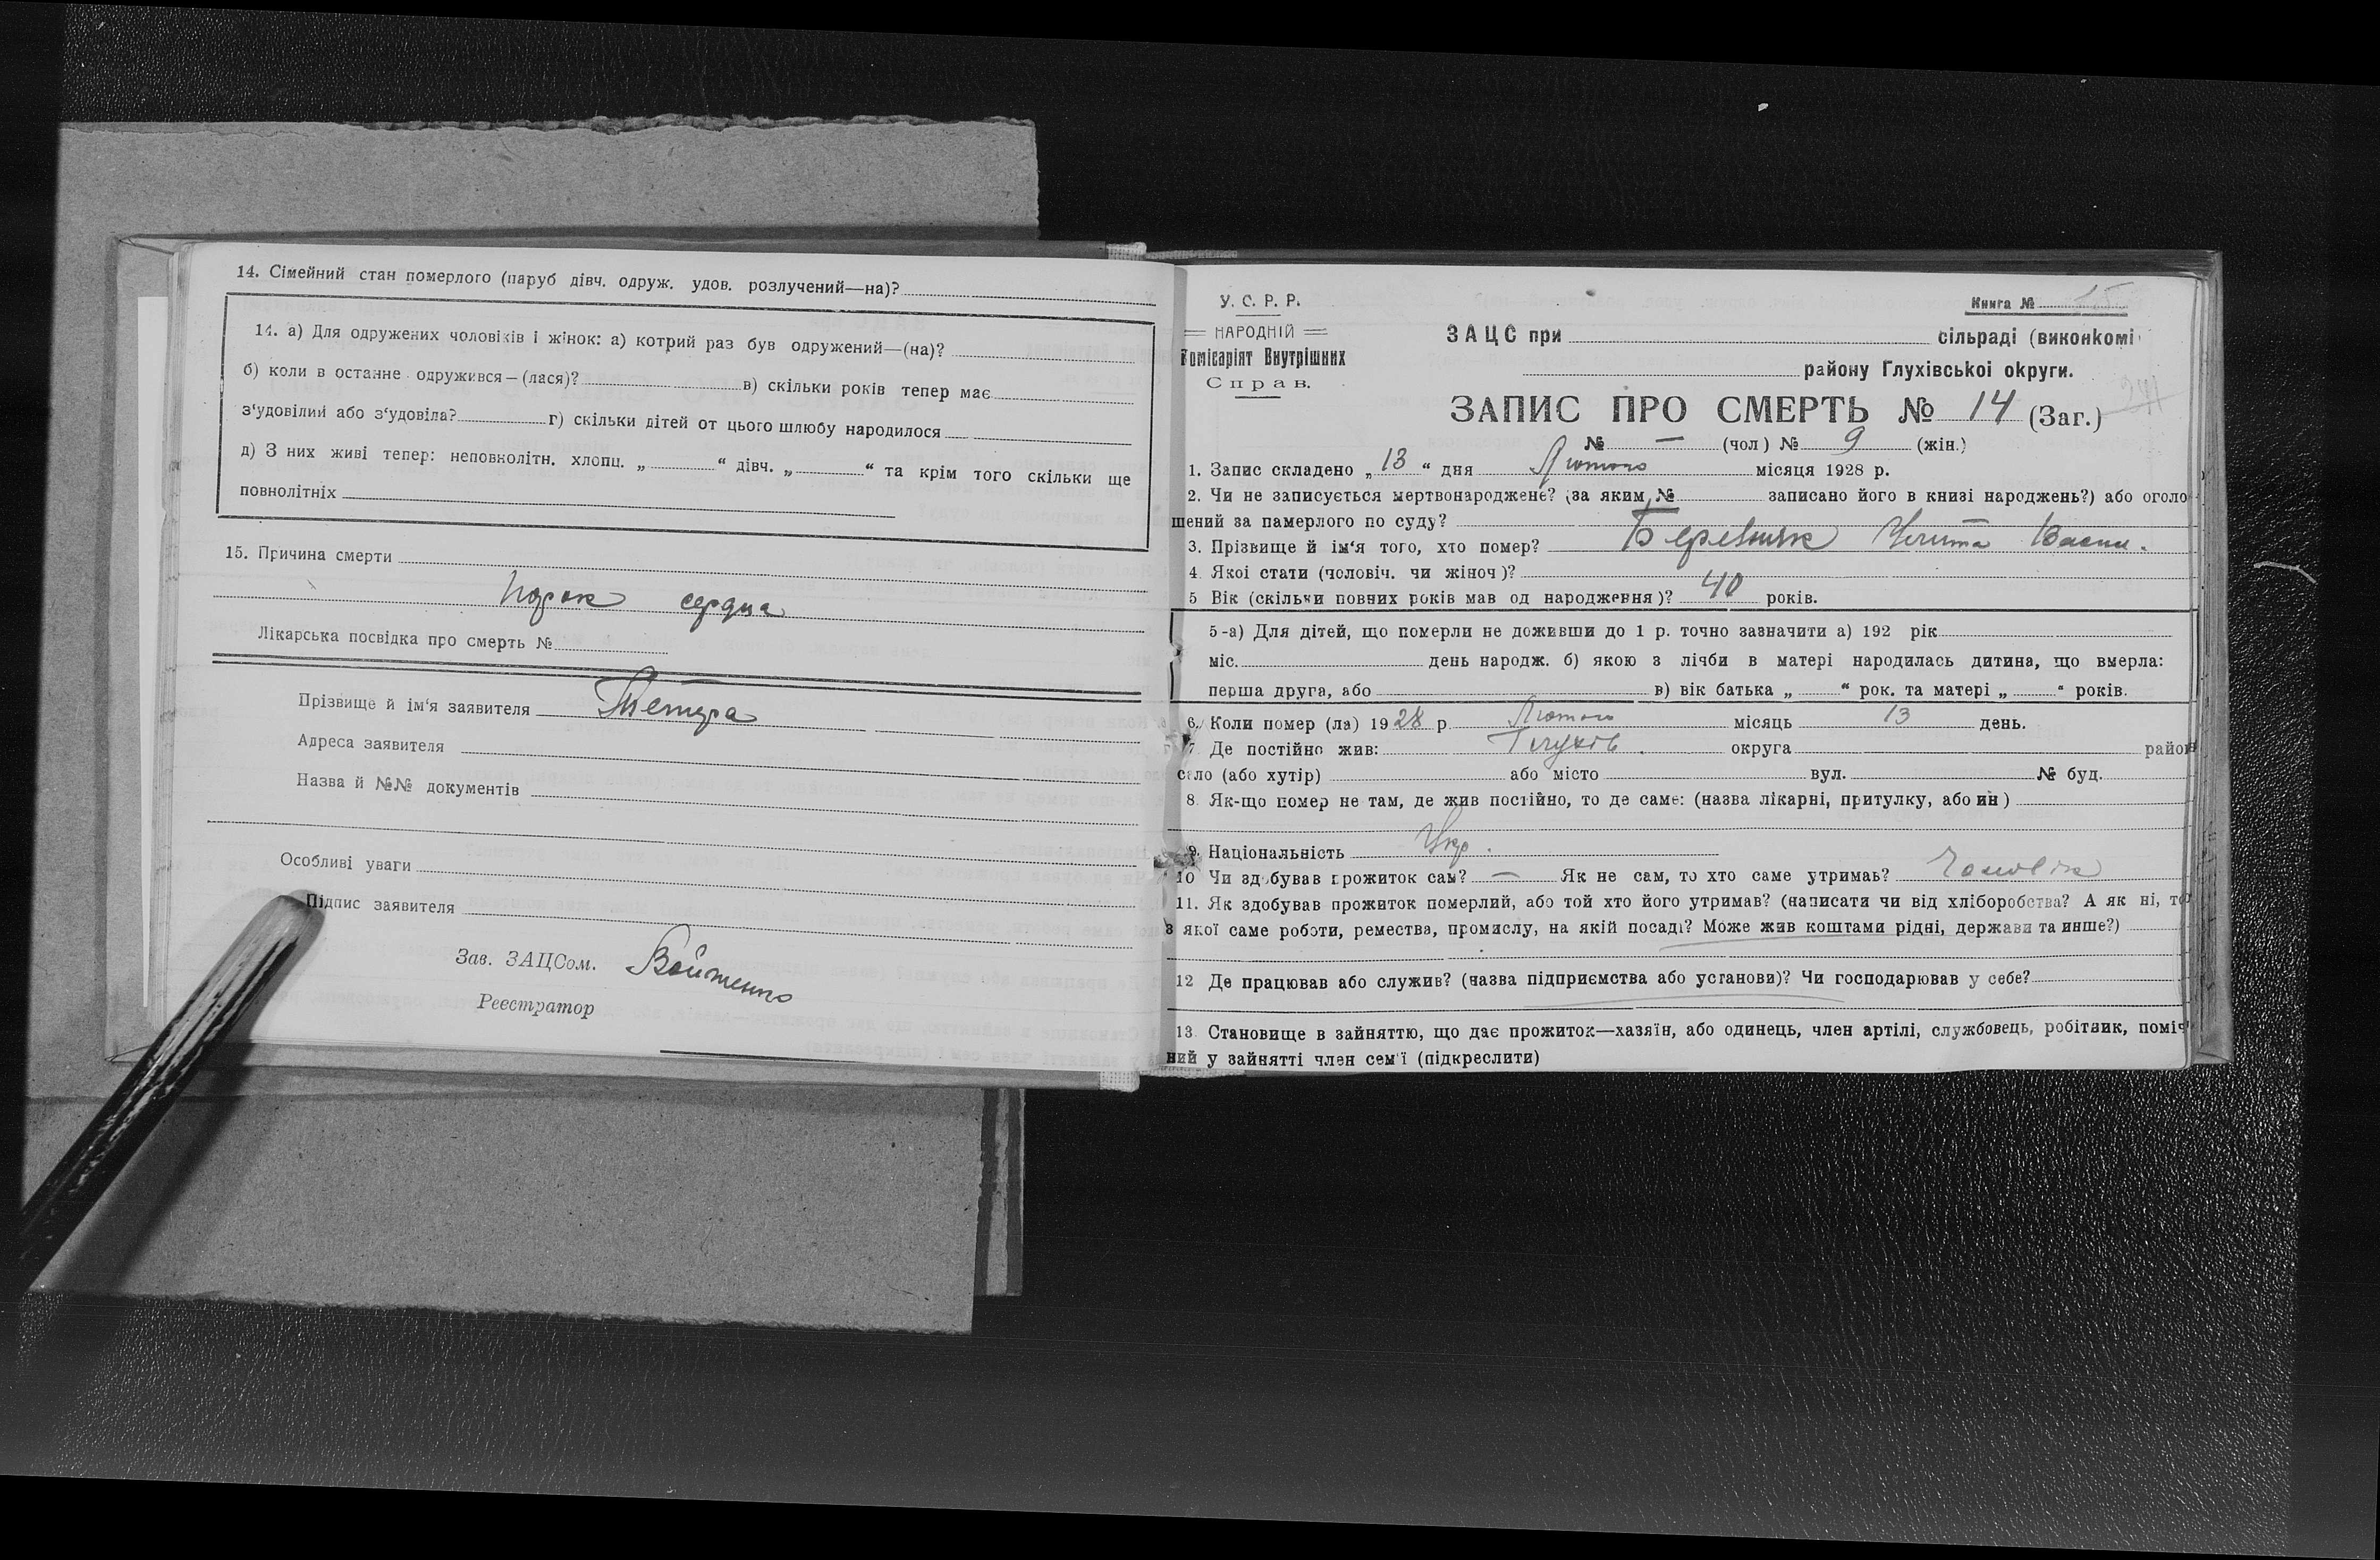 14. Сімейний стан померлого (паруб дівч. одруж. удов. розлучений—на)?
14. а) Для одружених чоловіків і жінок: а) котрий раз був одружений—(на)?
б) коли в останне одружився—(лася)? в) скільки років тепер має
з‘удовілий або з‘удовіла? г) скільки дітей от цього шлюбу народилося
д) З них живі тепер: неповнолітн. хлопц. „ “ дівч. „ “ та крім того скільки ще
повнолітніх
15. Причина смерти
Порок сердца
Лікарська посвідка про смерть №
Прізвище й ім‘я заявителя
Адреса заявителя
Назва й №№ документів
Особливі уваги
Підпис заявителя
Зав. ЗАЦСом. Войтенко
Реєстратор
У. С. Р. Р.
НАРОДНІЙ
Комісаріят Внутрішних
Справ.
Книга № 15
ЗАЦС при сільраді (виконкомі
району Глухівської округи.
ЗАПИС ПРО СМЕРТЬ № 14 (Заг.)
№ — (чол) № 9 (жін.)
1. Запис складено „ 13 “ дня Лютого місяця 1928 р.
2. Чи не записується мертвонароджене? (за яким № записано його в книзі народжень?) або оголо
шений за памерлого по суду?
3. Прізвище й ім‘я того, хто помер?
4. Якої стати (чоловіч. чи жіноч)?
5 Вік (скільки повних років мав од народження)? 40 років.
5-а) Для дітей, що померли не доживши до 1 р. точно зазначити а) 192 рік
міс. день народж. б) якою з лічби в матері народилась дитина, що вмерла:
перша друга, або в) вік батька „ “ рок. та матері „ “ років.
6. Коли помер (ла) 1928 р Лютого місяць 13 день.
7 Де постійно жив: Глухів. округа район
село (або хутір) або місто вул. № буд.
8. Як-що помер не там, де жив постійно, то де саме: (назва лікарні, притулку, або ин)
9. Національність Укр.
10 Чи здобував прожиток сам? — Як не сам, то хто саме утримаь? Чоловік
11. Як здобував прожиток померлий, або той хто його утримав? (написати чи від хліборобства? А як ні, то
з якої саме роботи, ремества, промислу, на якій посаді? Може жив коштами рідні, держави та инше?)
12 Де працював або служив? (назва підприємства або установи)? Чи господарював у себе?
13. Становище в зайняттю, що дає прожиток—хазяїн, або одинець, член артілі, службовець, робітник, поміч
ний у зайнятті член сем‘ї (підкреслити)